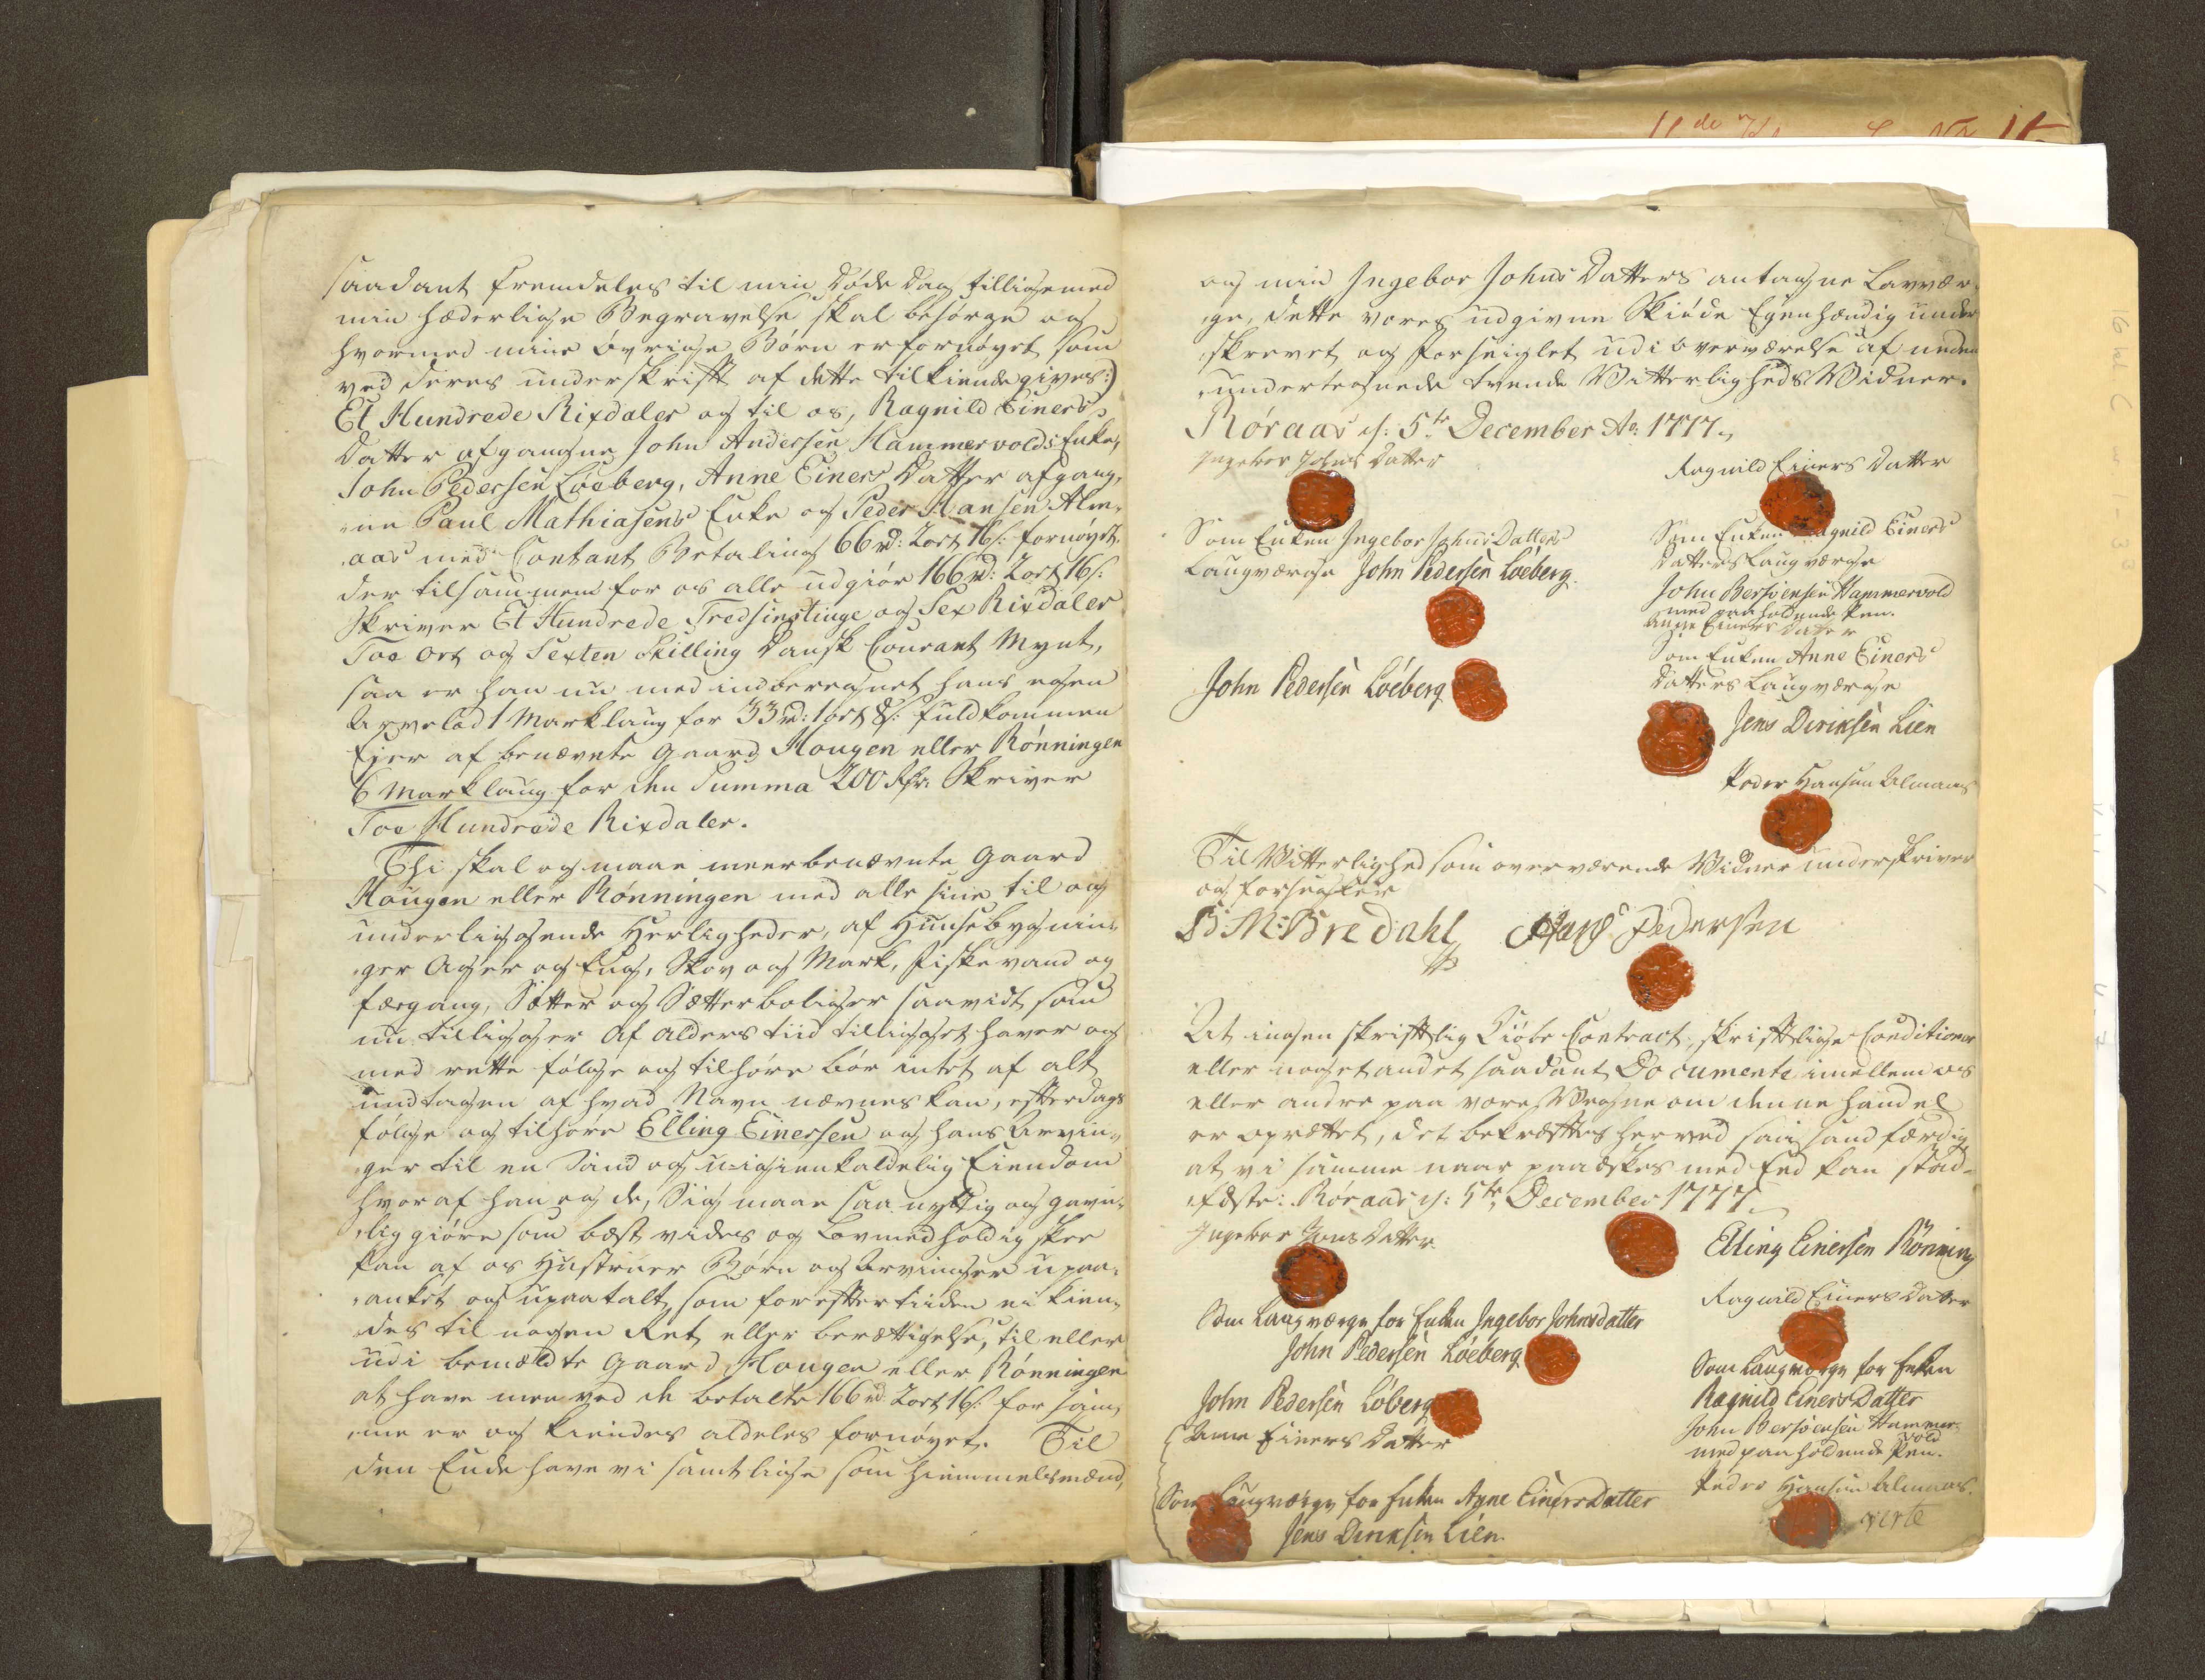 saadant fremdeles til min Døde Dag tilligemed
min hæderlige Begravelse skal besørge og
hvormed mine øvrige Børn er fornøyet som
ved deres underskrift af dette tilkiendegives:)
Et Hundrede Rixdaler og til os, Ragnild Einers
Datter afgangne John Andersen Hammervolds Enke,
John Pedersen Løeberg, Anne Einers Datter afgang,
ne Paul Mathiasens Enke og Peder Hansen Alm,
aas med Contant Betaling 66 rd: 2 ort 16 s: fornøyet.
der tilsammens for os alle udgiør 166 rd: 2 ort 16 s:
skriver Et Hundrede Tredsinstinge og Sex Rixdaler
Toe ort og Sexten Skilling Dansk Courant Mynt,
saa er han nu med indberegnet hans egen
Arvelod 1 Marklaug for 33 rd: 1 ort 8 s: fuldkommen
Ejer af benævnte Gaard Hougen eller Rønningen
6 Marklaug for den Summa 200 Rdr. Skriver
Toe Hundrede Rixdaler.
Thi skal og maae meerbenævnte Gaard
Hougen eller Rønningen med alle sine til og
underliggende Herligheder, af Huusebygnin,
ger Ager og Eng, Skov og Mark, fiskevand og
færgang, Sætter og Sætterboliger saavidt som
nu tilligger af Alders tiid tilligget haver og
med rette følge og tilhøre bør intet af alt
undtagen af hvad Navn nævnes kan, efterdags
følge og tilhøre Elling Einersen og hans Arvin,
ger til en Sand og uigienkaldelig Eiendom
hvoraf han og de, Sig maae saa nyttig og gavn,
lig giøre som best vides og Lovmedholdig skee
kan af os Hustruer Børn og Arvinger upaa,
anket og upaatalt, som for eftertiiden ei kien,
des til nogen Ret eller berettigelse, til eller
udi bemældte Gaard Hougen eller Rønningen
at have men ved de betalte 166 rd 2 ort 16 s: for sam,
me er og kiendes aldeles fornøyet. Til
den Ende have vi samtlige som hiemmelsmænd,
og min Ingebor Johns Datters antagne Lavvær,
ge, dette vores udgivne Skiøde Egenhændig under
skrevet og forseiglet udi overværelse af neden
undertegnede tvende Vitterligheds Vidner.
Røraas d: 5te December Ao: 1777.
Ingebor Johns Datter
Ragnild Einers Datter
Som Enken Ingebor Johns Datters
Laugværge John Pedersen Løeberg.
Som Enken Ragnild Einers
Datters Laugværge
John Bersvensen Hammervold
med paaholdende Pen.
Anne Einers Datter
Som Enken Anne Einers
Datters Laugværge
John Pedersen Løeberg
Jens Diriksen Lien
Peder Hansen Almaas
Til Vitterlighed som overværende Vidner underskriver
og forseigler
B M: Bredahl Hans Pedersen
At ingen skriftlig Kiøbe Contract, skriftlige Conditioner
eller noget andet saadant Documente imellem os
eller andre paa vores Vegne om denne handel
er oprettet, det bekræftes herved saa sandfærdig
at vi samme naar paaæskes med Eed kan stad,
fæste: Røraas d: 5te December 1777
Ingebor Jons Datter
Elling Einersen Rønning
Ragnild Einers Datter
Som Laugværge for Enken Ingebor Johnsdatter
John Pedersen Løeberg
Som Laugværge for Enken
Ragnild Einers Datter
John Bersvensen Hammer-
vold
med paaholdende Pen.
John Pedersen Løberg
Anne Einers Datter
Peder Hansen Almaas.
Som Laugværge for Enken Anne Einers Datter
Jens Dirksen Lien.
verte